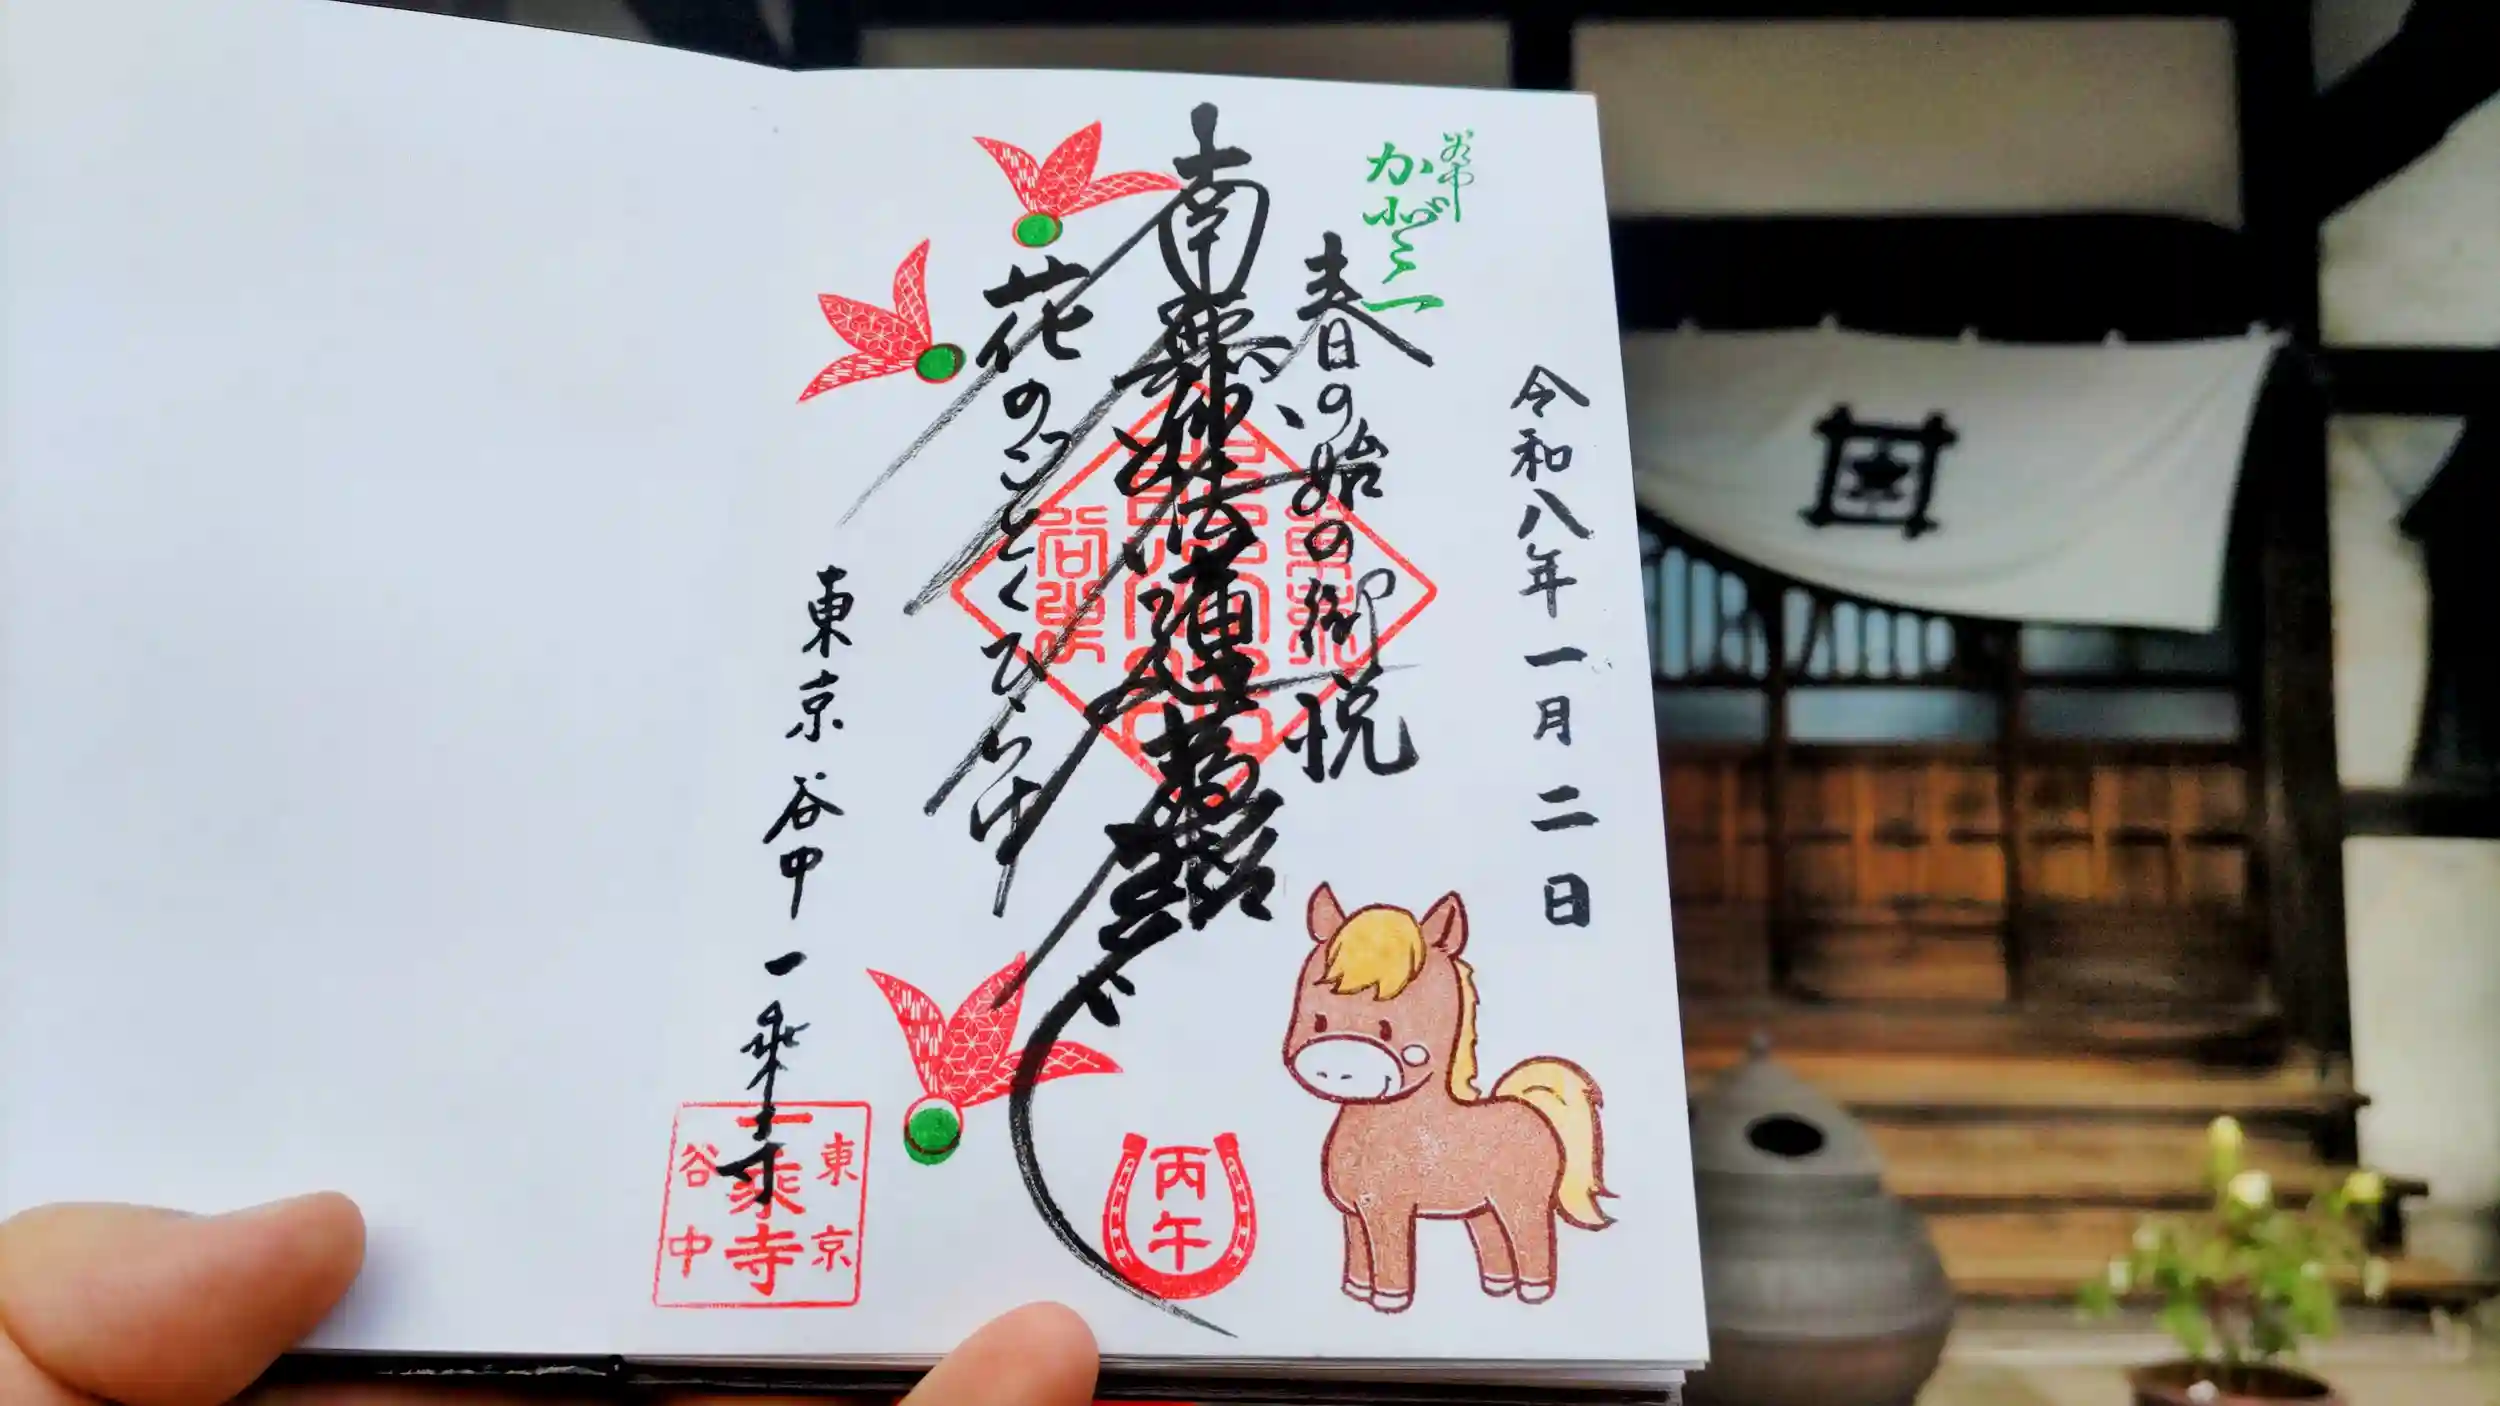 令和八年一月二日
谷中
春の始の御悦
南無妙法蓮華経
花のことくひらけ
東京谷中一乗寺
丙午
東京
一乗寺
谷中